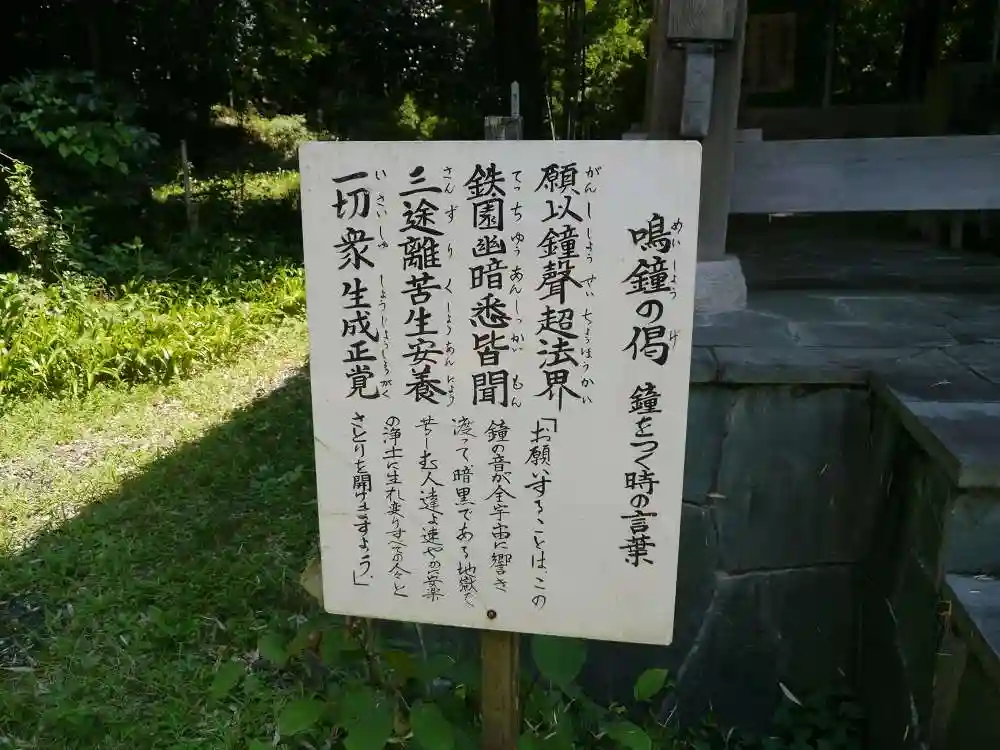 鳴鐘の偈 鐘をつく時の言葉
めいしょう げ
願以鐘聲超法界
がんししょうせいちょうほうかい
鉄園幽暗悉皆聞
てっちゆうあんしっかいもん
三途離苦生安養
さんずりくしょうあんにょう
一切衆生成正覚
いさいしゅじょうじょうしょうがく
「お願いすることは、この
鐘の音が全宇宙に響き
渡って、暗黒である地獄で
苦しむ人達よ速やかに安楽
の浄土に生れ変りすべての人々と
さとりを開けますよう。」